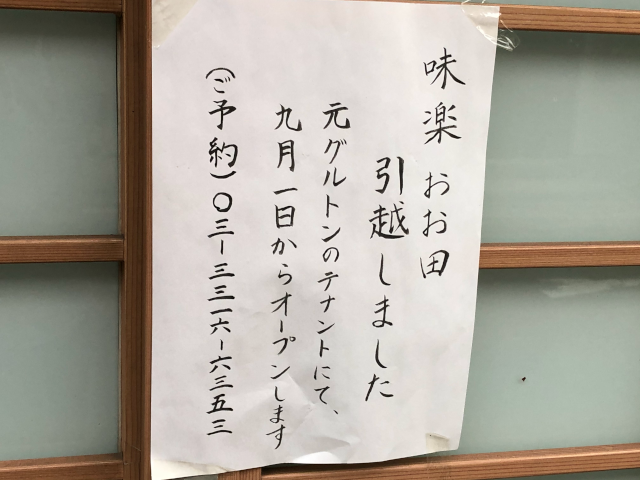 味楽 おお田
引越しました
元グルトンのテナントにて、
九月一日からオープンします
(ご予約)〇三-三三一六-六三五三